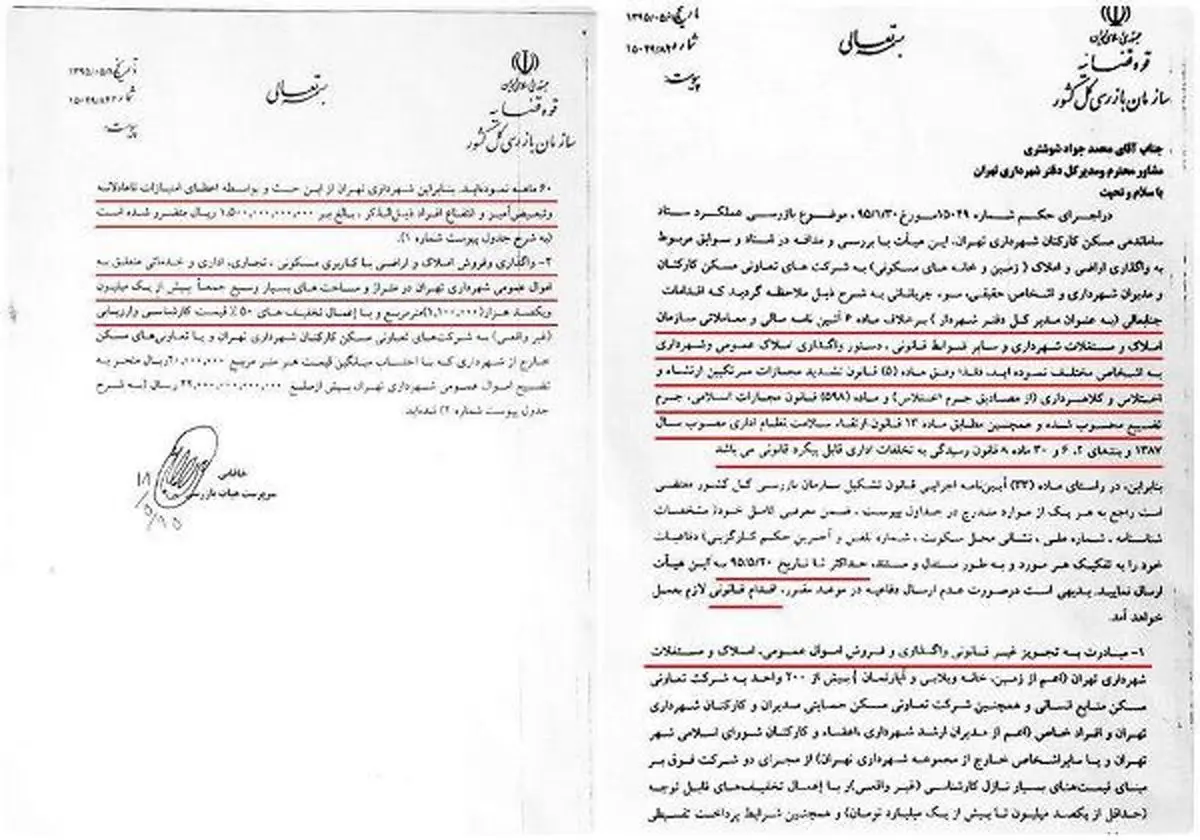 تاریخ ۱۳۹۵/۰۵/
شماره ۱۵۰۲۹/۸۴۲
پیوست:
بسمه تعالی
جمهوری اسلامی ایران
قوه قضائیه
سازمان بازرسی کل کشور
جناب آقای محمد جواد شوشتری
مشاور محترم ومدیرکل دفتر شهرداری تهران
با سلام و تحیت
دراجرای حکم شماره ۱۵۰۲۹مورخ ۹۵/۱/۳۰، موضوع بازرسی عملکرد ستاد
ساماندهی مسکن کارکنان شهرداری تهران، این هیأت با بررسی و مداقه در اسناد و سوابق مربوط
به واگذاری اراضی و املاک ( زمین و خانه های مسکونی) به شرکت های تعاونی مسکن کارکنان
و مدیران شهرداری و اشخاص حقیقی، سوء جریاناتی به شرح ذیل ملاحظه گردید که اقدامات
جنابعالی (به عنوان مدیر کل دفتر شهردار ) برخلاف ماده ۶ آئین نامه مالی و معاملاتی سازمان
املاک و مستغلات شهرداری و سایر ضوابط قانونی ، دستور واگذاری املاک عمومی وشهرداری
به اشخاص مختلف نموده اید. لذا؛ وفق ماده (۵) قانون تشدید مجازات مرتکبین ارتشاء و
اختلاس و کلاهبرداری (از مصادیق جرم اختلاس) و ماده (۵۹۸) قانون مجازات اسلامی، جرم
تضییع محسوب شده و همچنین مطابق ماده ۱۳ قانون ارتقاء سلامت نظام اداری مصوب سال
۱۳۸۷ و بندهای ۲، ۶ و ۳۰ ماده ۸ قانون رسیدگی به تخلفات اداری قابل پیگرد قانونی می باشد
بنابراین، در راستای ماده (۳۳) آیین‌نامه اجرایی قانون تشکیل سازمان بازرسی کل کشور مقتضی
است راجع به هر یک از موارد مندرج در جداول پیوست ، ضمن معرفی کامل خود( مشخصات
شناسنامه ، شماره ملی ، نشانی محل سکونت ، شماره تلفن و آخرین حکم کارگزینی) دفاعیات
خود را به تفکیک هر مورد و به طور مستدل و مستند، حداکثر تا تاریخ ۹۵/۵/۲۰ به این هیأت
ارسال نمایید. بدیهی است درصورت عدم ارسال دفاعیه در موعد مقرر، اقدام قانونی لازم بعمل
خواهد آمد.
۱- مبادرت به تجویز غیر قانونی واگذاری و فروش اموال عمومی، املاک و مستغلات
شهرداری تهران (اعم از زمین، خانه ویلایی و آپارتمان ) بیش از ۲۰۰ واحد به شرکت تعاونی
مسکن منابع انسانی و همچنین شرکت تعاونی مسکن حمایتی مدیران و کارکنان شهرداری
تهران و افراد خاص (اعم از مدیران ارشد شهرداری ،اعضاء و کارکنان شورای اسلامی شهر
تهران و یا سایراشخاص خارج از مجموعه شهرداری تهران) از مجرای دو شرکت فوق بر
مبنای قیمت‌های بسیار نازل کارشناسی (غیر واقعی)و با إعمال تخفیف‌های قابل توجه
(حداقل از یکصد میلیون تا بیش از یک میلیارد تومان) و همچنین شرایط پرداخت تقسیطی
تاریخ ۱۳۹۵/۰۵/
شماره ۱۵۰۲۹/۸۴۲
پیوست:
بسمه تعالی
جمهوری اسلامی ایران
قوه قضائیه
سازمان بازرسی کل کشور
۶۰ ماهه نموده‌اید. بنابراین شهرداری تهران از این حیث و بواسطه اعطای امتیازات ناعادلانه
وتبعیض‌آمیز و انتفاع افراد ذیل‌الذکر ، بالغ بر ۱،۵۰۰،۰۰۰،۰۰۰،۰۰۰ ریال متضرر شده است
(به شرح جدول پیوست شماره ۱).
۲- واگذاری وفروش املاک و اراضی با کاربری مسکونی ، تجاری، اداری و خدماتی متعلق به
اموال عمومی شهرداری تهران در متراژ و مساحت های بسیار وسیع جمعاً بیش از یک میلیون
ویکصد هزار(۱،۱۰۰،۰۰۰)مترمربع و با إعمال تخفیف های ۵۰ ٪ قیمت کارشناسی وارزیابی
(غیر واقعی) به شرکت‌های تعاونی مسکن کارکنان شهرداری تهران و یا تعاونی‌های مسکن
خارج از شهرداری که با احتساب میانگین قیمت هر متر مربع ۲۰،۰۰۰،۰۰۰ریال منجر به
تضییع اموال عمومی شهرداری تهران بیش ازمبلغ ۲۲،۰۰۰،۰۰۰،۰۰۰،۰۰۰ ریال (به شرح
جدول پیوست شماره ۲) شده‌اید.
خاقانی
سرپرست هیات بازرسی
۱۸/۵/۹۵